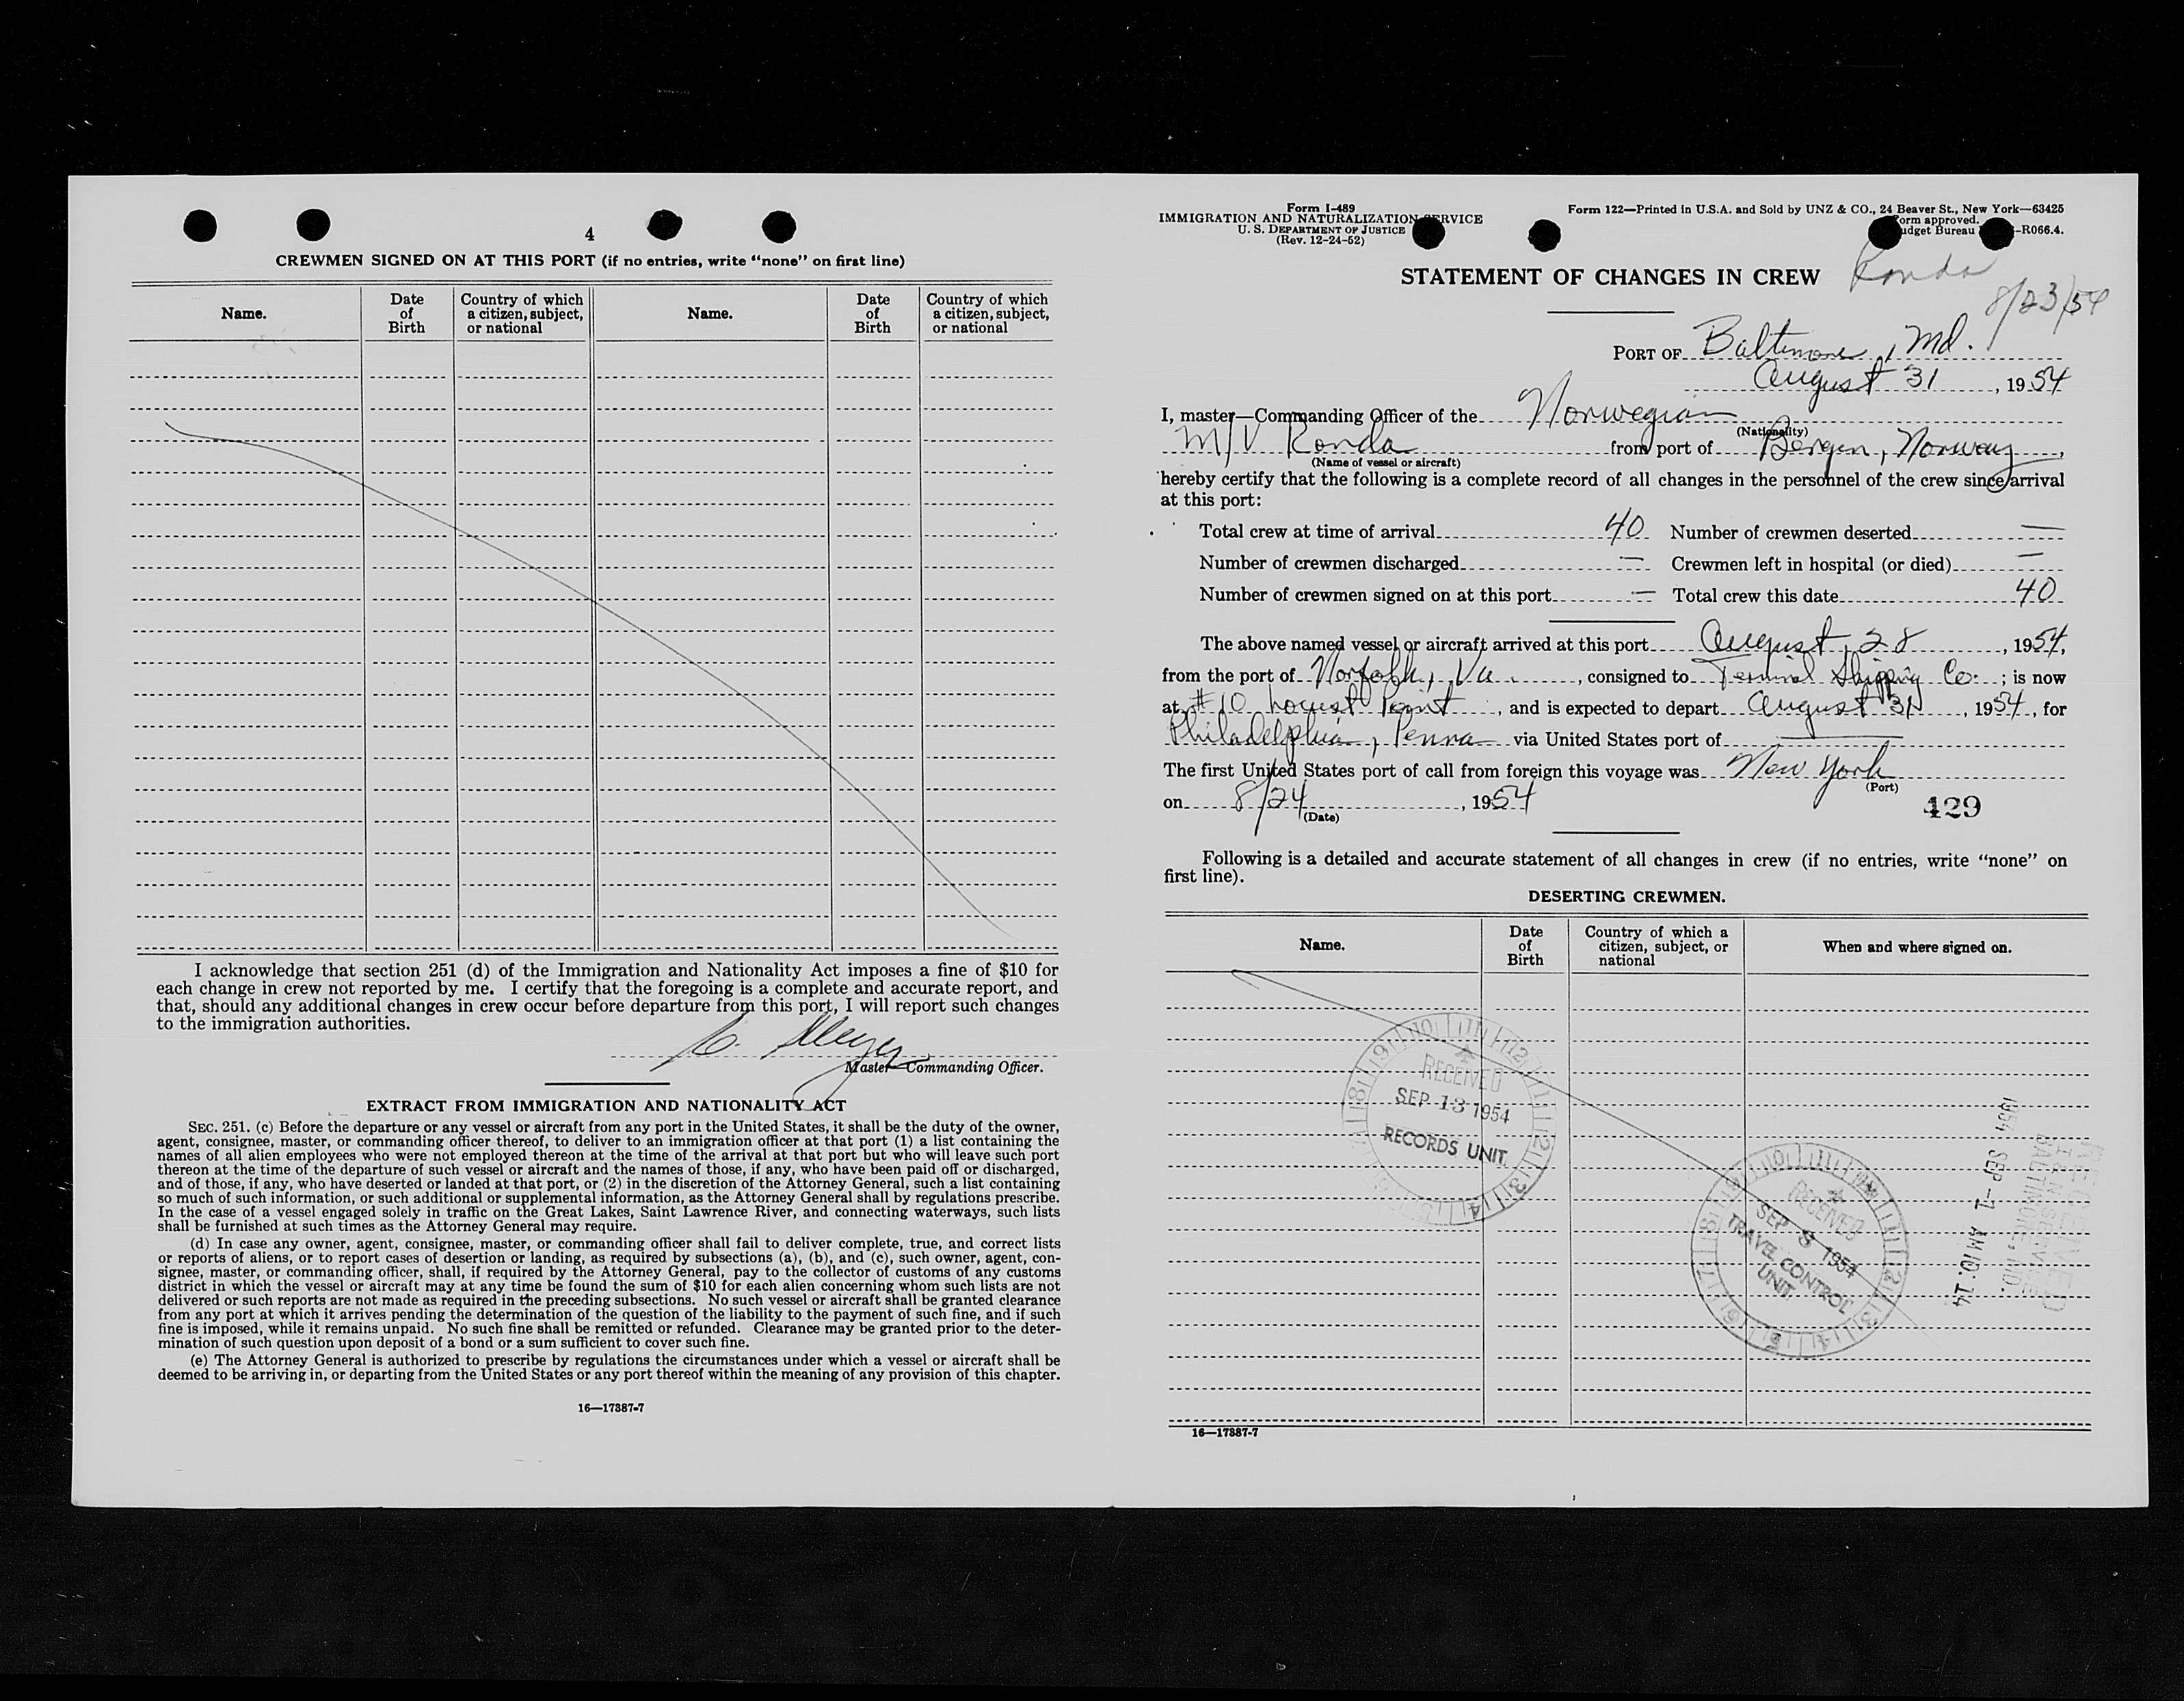 4
CREWMEN SIGNED ON AT THIS PORT (if no entries, write “none” on first line)
Name. Date of Birth Country of which a citizen, subject, or national Name. Date of Birth Country of which a citizen, subject, or national
I acknowledge that section 251 (d) of the Immigration and Nationality Act imposes a fine of $10 for
each change in crew not reported by me. I certify that the foregoing is a complete and accurate report, and
that, should any additional changes in crew occur before departure from this port, I will report such changes
to the immigration authorities.
C. Meyer
Master—Commanding Officer.
EXTRACT FROM IMMIGRATION AND NATIONALITY ACT
SEC. 251. (c) Before the departure or any vessel or aircraft from any port in the United States, it shall be the duty of the owner,
agent, consignee, master, or commanding officer thereof, to deliver to an immigration officer at that port (1) a list containing the
names of all alien employees who were not employed thereon at the time of the arrival at that port but who will leave such port
thereon at the time of the departure of such vessel or aircraft and the names of those, if any, who have been paid off or discharged,
and of those, if any, who have deserted or landed at that port, or (2) in the discretion of the Attorney General, such a list containing
so much of such information, or such additional or supplemental information, as the Attorney General shall by regulations prescribe.
In the case of a vessel engaged solely in traffic on the Great Lakes, Saint Lawrence River, and connecting waterways, such lists
shall be furnished at such times as the Attorney General may require.
(d) In case any owner, agent, consignee, master, or commanding officer shall fail to deliver complete, true, and correct lists
or reports of aliens, or to report cases of desertion or landing, as required by subsections (a), (b), and (c), such owner, agent, con-
signee, master, or commanding officer, shall, if required by the Attorney General, pay to the collector of customs of any customs
district in which the vessel or aircraft may at any time be found the sum of $10 for each alien concerning whom such lists are not
delivered or such reports are not made as required in the preceding subsections. No such vessel or aircraft shall be granted clearance
from any port at which it arrives pending the determination of the question of the liability to the payment of such fine, and if such
fine is imposed, while it remains unpaid. No such fine shall be remitted or refunded. Clearance may be granted prior to the deter-
mination of such question upon deposit of a bond or a sum sufficient to cover such fine.
(e) The Attorney General is authorized to prescribe by regulations the circumstances under which a vessel or aircraft shall be
deemed to be arriving in, or departing from the United States or any port thereof within the meaning of any provision of this chapter.
16—17387-7
Form I-489
IMMIGRATION AND NATURALIZATION SERVICE
U. S. DEPARTMENT OF JUSTICE
(Rev. 12-24-52)
Form 122—Printed in U.S.A. and Sold by UNZ & CO., 24 Beaver St., New York—63425
Form approved.
Budget Bureau -R066.4.
STATEMENT OF CHANGES IN CREW
Ronda
8/23/54
PORT OF Baltimore, Md.
August 31, 1954
I, master—Commanding Officer of the Norwegian
(Nationality)
M/V Ronda from port of Bergen, Norway,
(Name of vessel or aircraft)
hereby certify that the following is a complete record of all changes in the personnel of the crew since arrival
at this port:
Total crew at time of arrival 40 Number of crewmen deserted —
Number of crewmen discharged — Crewmen left in hospital (or died) —
Number of crewmen signed on at this port — Total crew this date 40
The above named vessel or aircraft arrived at this port August, 28, 1954,
from the port of Norfolk, Va., consigned to Terminal Shipping Co.; is now
at #10 Locust Point, and is expected to depart August 31, 1954, for
Philadelphia, Penna via United States port of —
The first United States port of call from foreign this voyage was New York
(Port)
on 8/24, 1954
(Date)
429
Following is a detailed and accurate statement of all changes in crew (if no entries, write “none” on
first line).
DESERTING CREWMEN.
Name. Date of Birth Country of which a citizen, subject, or national When and where signed on.
RECEIVED
SEP 13 1954
RECORDS UNIT
RECEIVED
SEP 8 1954
TRAVEL CONTROL
UNIT
RECEIVED
BALTIMORE, MD.
1954 SEP -1 AM 10:14
16—17387-7